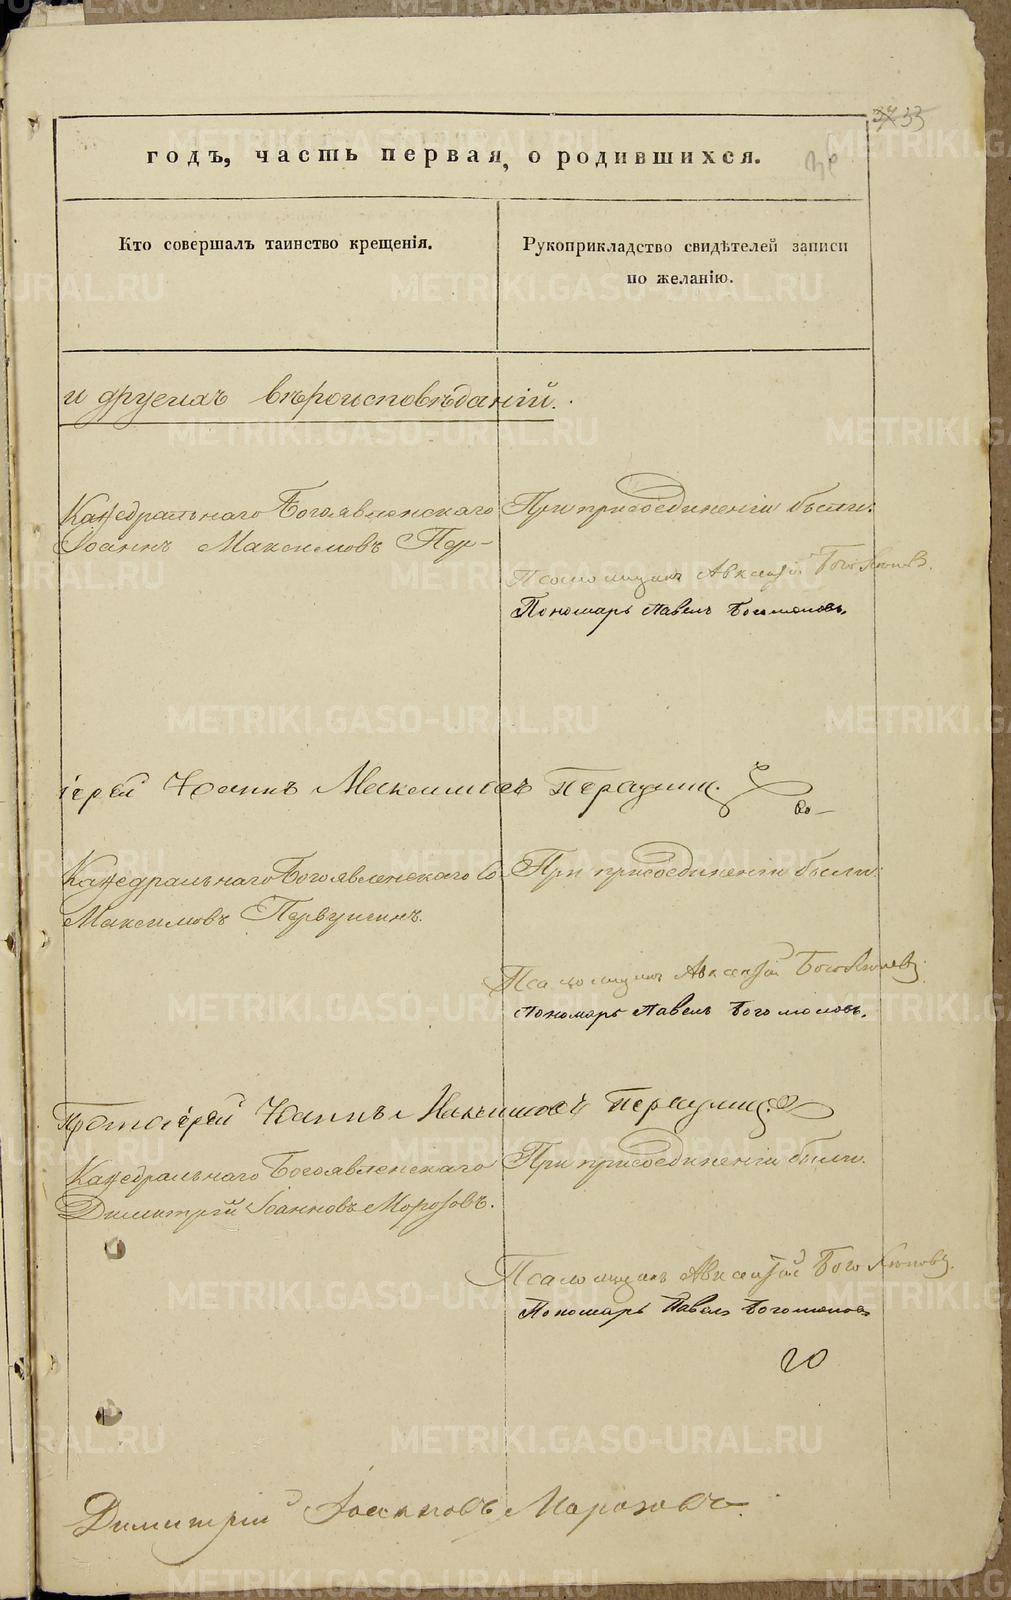 33
годъ, часть первая, о родившихся.
Кто совершалъ таинство крещенія.
Рукоприкладство свидѣтелей записи
по желанію.
и другихъ вѣроисповѣданій.
Каѳедральнаго Богоявленскаго
Іоаннъ Максимовъ Пер-
При присоединеніи были:
Псаломщикъ Авксентій
Пономарь Павелъ Богомоловъ.
іерей Іоаннъ Максимовъ Первушинъ.
Каѳедральнаго Богоявленскаго Со-
Максимовъ Первушинъ.
При присоединеніи были:
Псаломщикъ Авксентій
Пономарь Павелъ Богомоловъ.
Протоіерей Іоаннъ Максимовъ Первушинъ.
Каѳедральнаго Богоявленскаго
Димитрій Іоанновъ Морозовъ.
При присоединеніи были:
Псаломщикъ Авксентій
Пономарь Павелъ Богомоловъ
Димитрій Іоанновъ Морозовъ.
METRIKI.GASO-URAL.RU